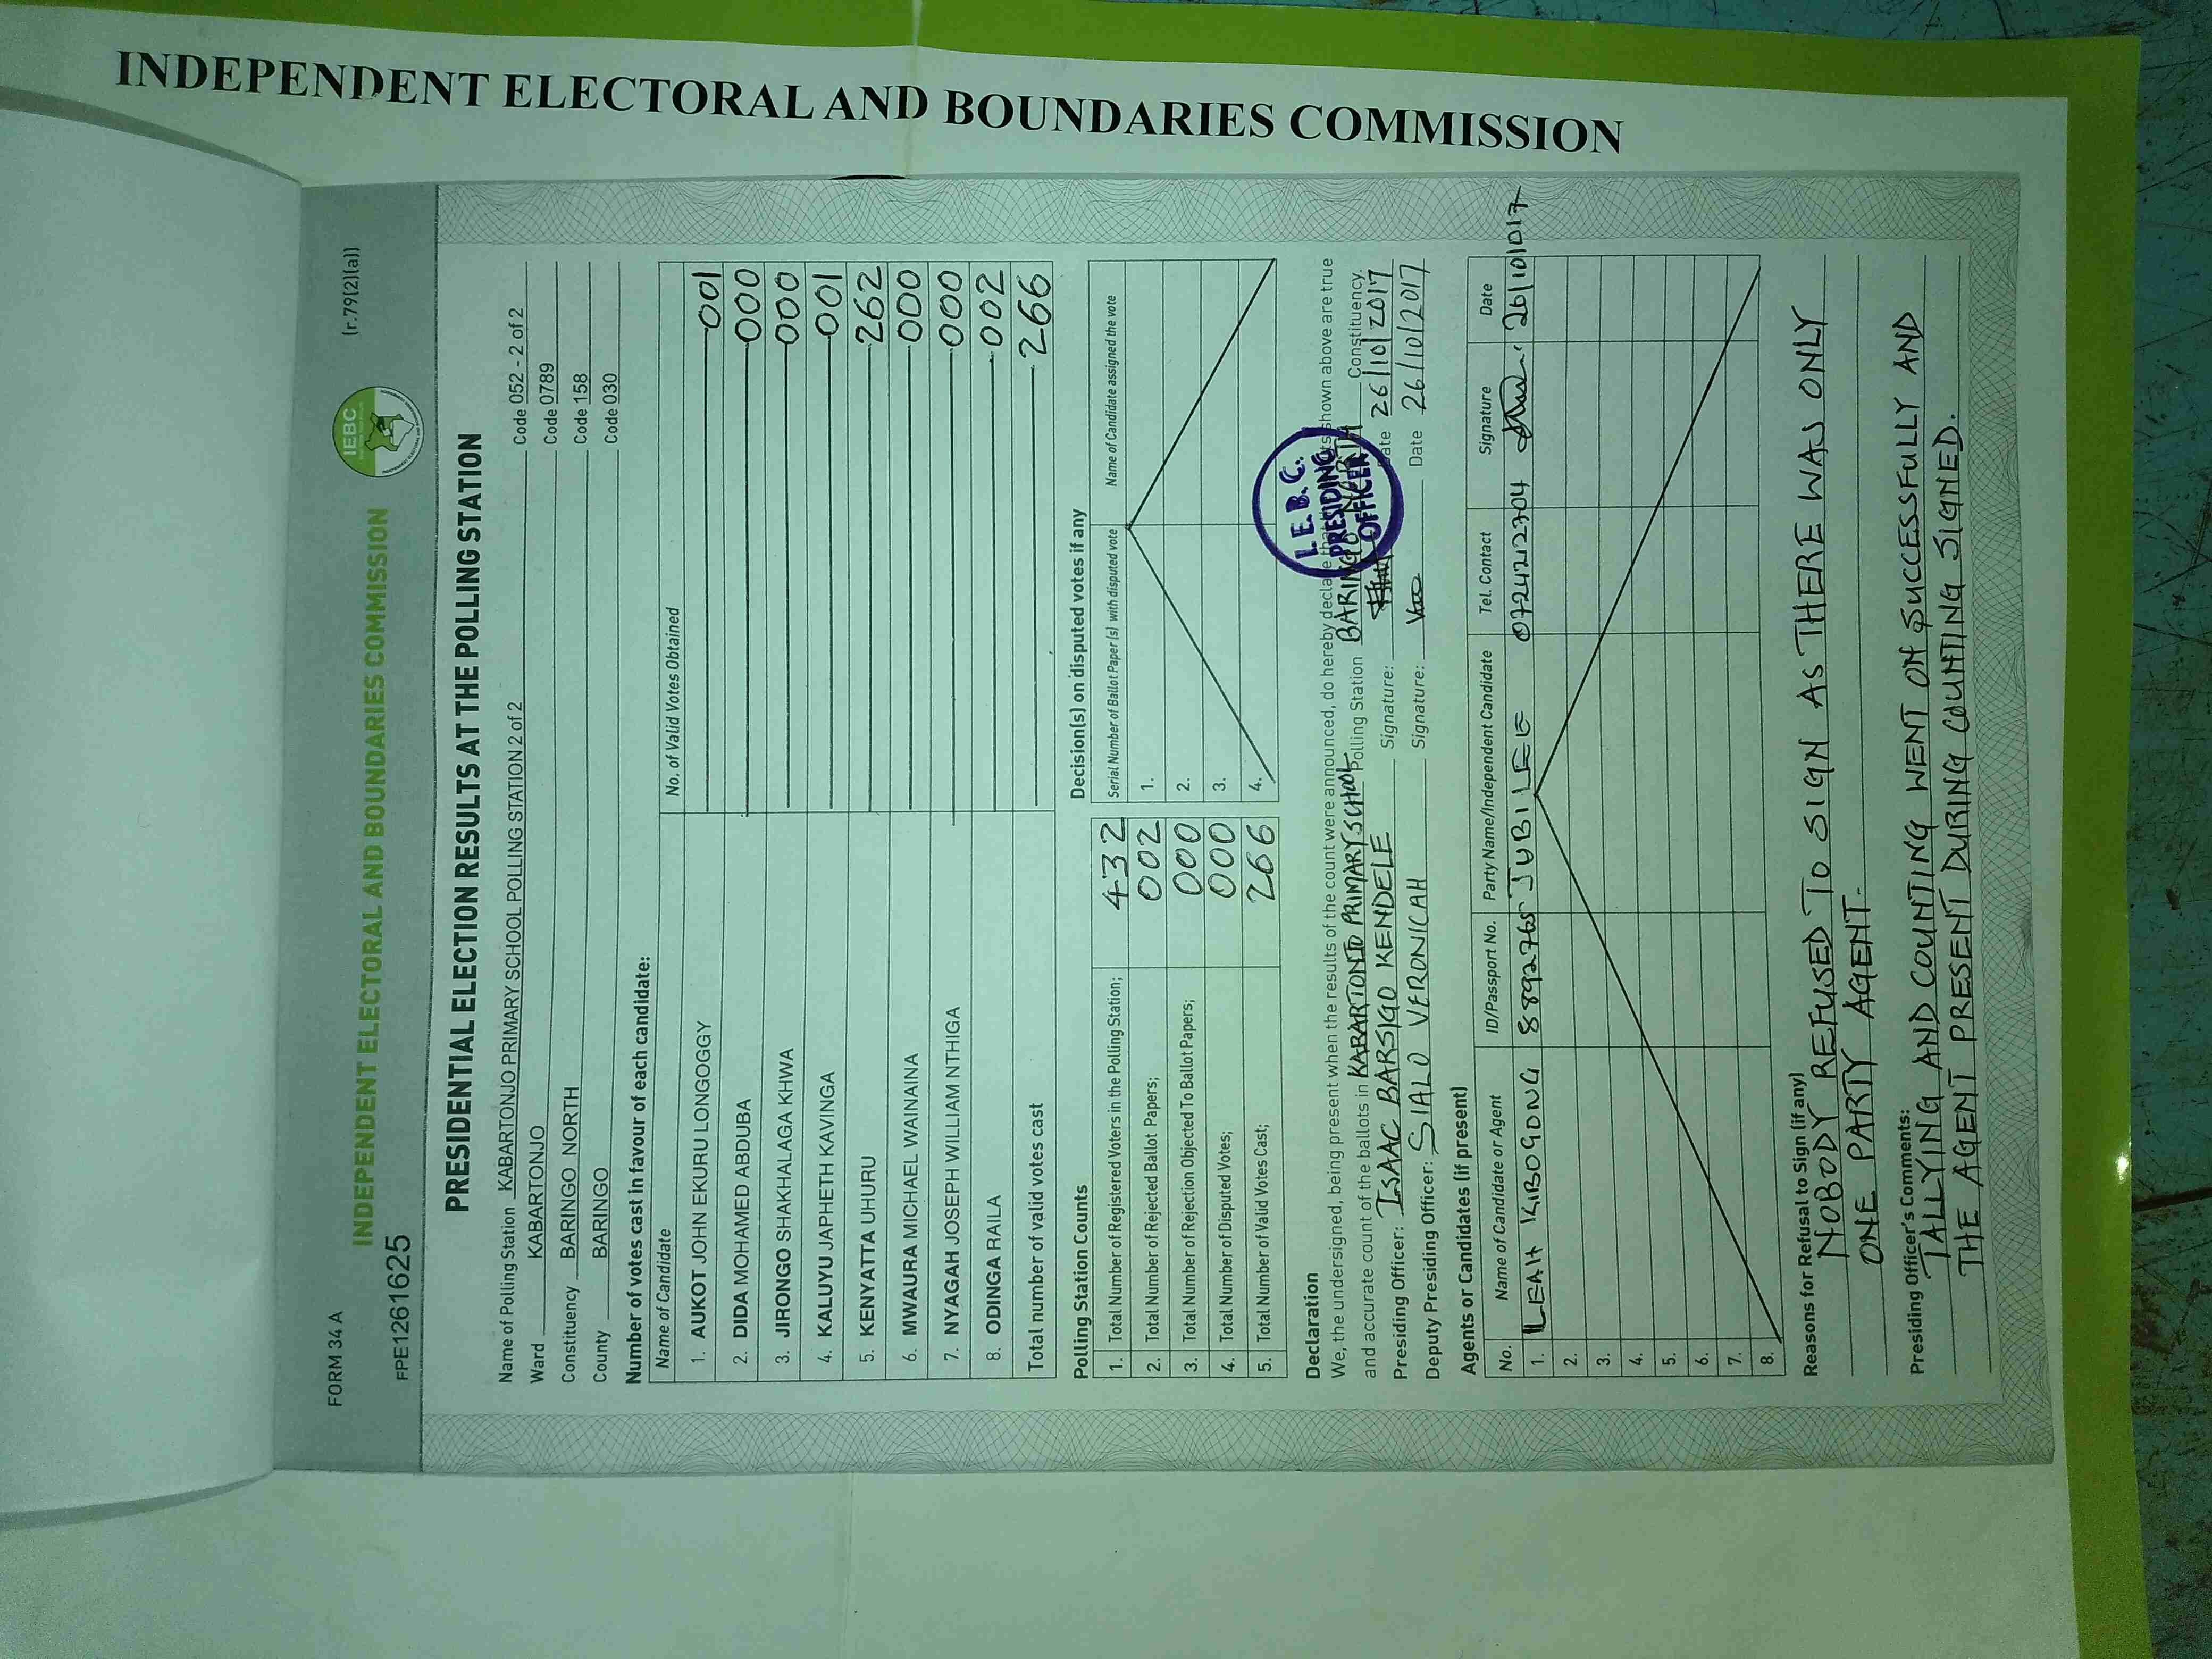 INDEPENDENT ELECTORAL AND BOUNDARIES COMMISSION
FORM 34 A
(r.79(2)(a))
INDEPENDENT ELECTORAL AND BOUNDARIES COMMISSION
IEBC
FPE1261625
PRESIDENTIAL ELECTION RESULTS AT THE POLLING STATION
Name of Polling Station KABARTONJO PRIMARY SCHOOL POLLING STATION 2 of 2 Code 052 - 2 of 2
Ward KABARTONJO Code 0789
Constituency BARINGO NORTH Code 158
County BARINGO Code 030
Number of votes cast in favour of each candidate:
Name of Candidate No. of Valid Votes Obtained
1. AUKOT JOHN EKURU LONGOGGY 001
2. DIDA MOHAMED ABDUBA 000
3. JIRONGO SHAKHALAGA KHWA 000
4. KALUYU JAPHETH KAVINGA 001
5. KENYATTA UHURU 262
6. MWAURA MICHAEL WAINAINA 000
7. NYAGAH JOSEPH WILLIAM NTHIGA 000
8. ODINGA RAILA 002
Total number of valid votes cast 266
Polling Station Counts
1. Total Number of Registered Voters in the Polling Station; 432
2. Total Number of Rejected Ballot Papers; 002
3. Total Number of Rejection Objected To Ballot Papers; 000
4. Total Number of Disputed Votes; 000
5. Total Number of Valid Votes Cast; 266
Decision(s) on disputed votes if any
Serial Number of Ballot Paper (s) with disputed vote Name of Candidate assigned the vote
1.
2.
3.
4.
Declaration
We, the undersigned, being present when the results of the count were announced, do hereby declare shown above are true
and accurate count of the ballots in KABARTONJO PRIMARY SCHOOL Polling Station BARINGO NORTH Constituency.
Presiding Officer: ISAAC BARSIGO KENDELE Signature: Date 26/10/2017
Deputy Presiding Officer: SIALO VERONICAH Signature: Date 26/10/2017
I.E.B.C.
PRESIDING
OFFICER
Agents or Candidates (if present)
No. Name of Candidate or Agent ID/Passport No. Party Name/Independent Candidate Tel. Contact Signature Date
1. LEAH KIBOGONG 8892765 JUBILEE 0724242704 26/10/017
2.
3.
4.
5.
6.
7.
8.
Reasons for Refusal to Sign (if any)
NOBODY REFUSED TO SIGN AS THERE WAS ONLY
ONE PARTY AGENT.
Presiding Officer's Comments:
TALLYING AND COUNTING WENT ON SUCCESSFULLY AND
THE AGENT PRESENT DURING COUNTING SIGNED.